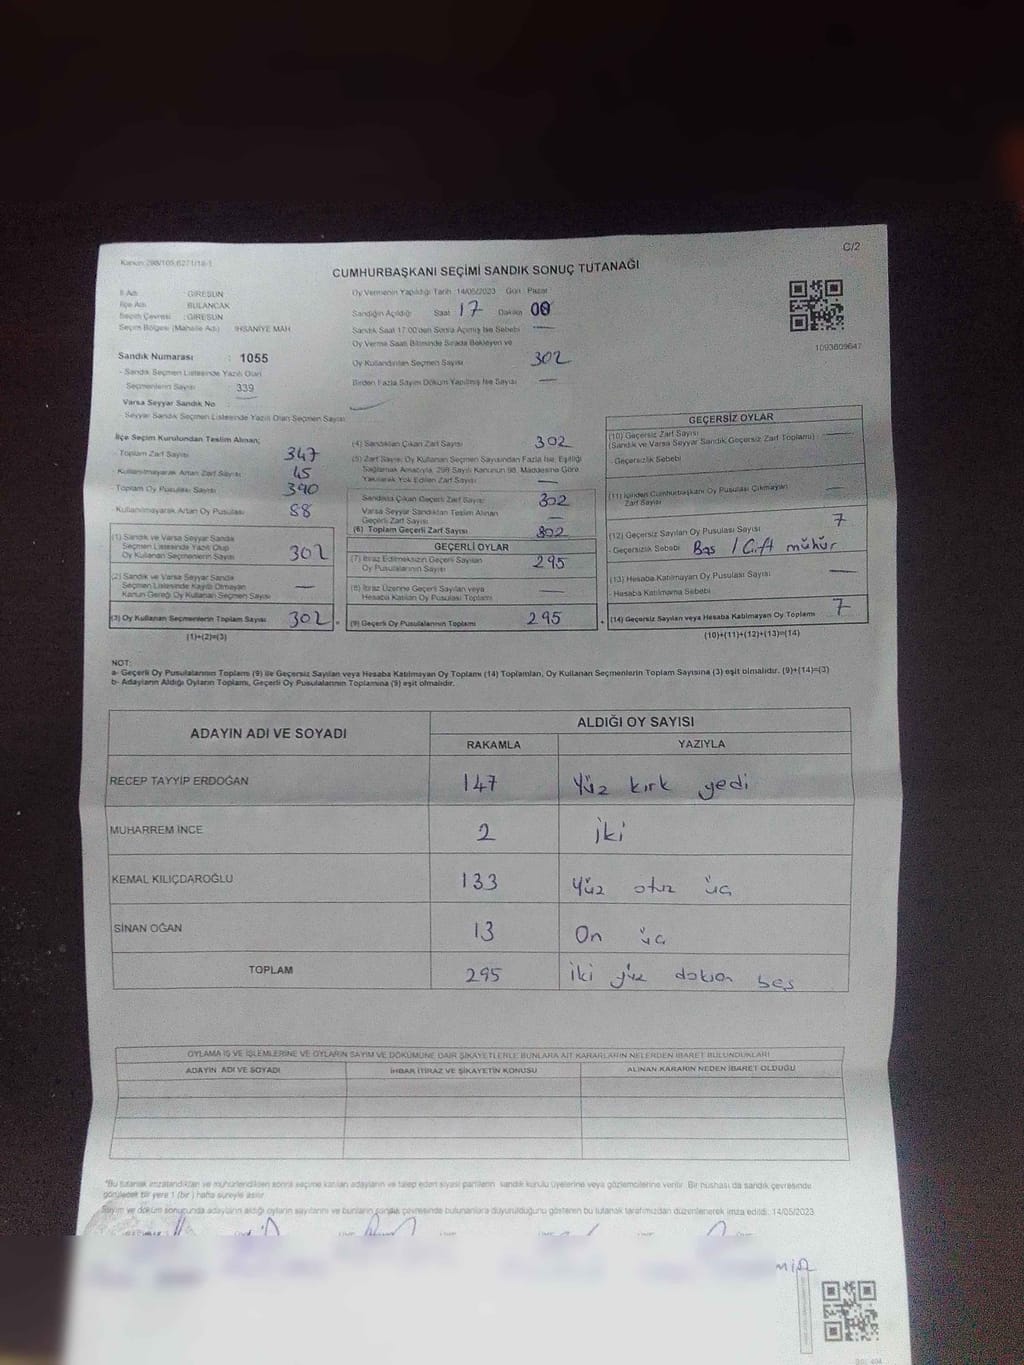 C/2
Kanun:298/105,6271/18-1
CUMHURBAŞKANI SEÇİMİ SANDIK SONUÇ TUTANAĞI
İl Adı : GİRESUN
İlçe Adı : BULANCAK
Seçim Çevresi : GİRESUN
Seçim Bölgesi (Mahalle Adı) İHSANİYE MAH
Sandık Numarası : 1055
- Sandık Seçmen Listesinde Yazılı Olan
Seçmenlerin Sayısı : 339
Varsa Seyyar Sandık No :
- Seyyar Sandık Seçmen Listesinde Yazılı Olan Seçmen Sayısı
Oy Vermenin Yapıldığı Tarih :14/05/2023 Gün : Pazar
Sandığın Açıldığı Saat 17 Dakika 00
Sandık Saat 17:00'den Sonra Açılmış İse Sebebi —
Oy Verme Saati Bitiminde Sırada Bekleyen ve
Oy Kullandırılan Seçmen Sayısı 302
Birden Fazla Sayım Döküm Yapılmış İse Sayısı —
1093609647
İlçe Seçim Kurulundan Teslim Alınan;
- Toplam Zarf Sayısı 347
- Kullanılmayarak Artan Zarf Sayısı 45
- Toplam Oy Pusulası Sayısı 390
- Kullanılmayarak Artan Oy Pusulası 88
(1) Sandık ve Varsa Seyyar Sandık
Seçmen Listesinde Yazılı Olup
Oy Kullanan Seçmenlerin Sayısı 302
(2) Sandık ve Varsa Seyyar Sandık
Seçmen Listesinde Kayıtlı Olmayan
Kanun Gereği Oy Kullanan Seçmen Sayısı —
(3) Oy Kullanan Seçmenlerin Toplam Sayısı 302 =
(1)+(2)=(3)
(4) Sandıktan Çıkan Zarf Sayısı 302
(5) Zarf Sayısı, Oy Kullanan Seçmen Sayısından Fazla İse, Eşitliği
Sağlamak Amacıyla, 298 Sayılı Kanunun 98. Maddesine Göre
Yakılarak Yok Edilen Zarf Sayısı —
Sandıkta Çıkan Geçerli Zarf Sayısı 302
Varsa Seyyar Sandıktan Teslim Alınan
Geçerli Zarf Sayısı —
(6) Toplam Geçerli Zarf Sayısı 302
GEÇERLİ OYLAR
(7) İtiraz Edilmeksizin Geçerli Sayılan
Oy Pusulalarının Sayısı 295
(8) İtiraz Üzerine Geçerli Sayılan veya
Hesaba Katılan Oy Pusulası Toplamı —
(9) Geçerli Oy Pusulalarının Toplamı 295 +
GEÇERSİZ OYLAR
(10) Geçersiz Zarf Sayısı
(Sandık ve Varsa Seyyar Sandık Geçersiz Zarf Toplamı) —
- Geçersizlik Sebebi
(11) İçinden Cumhurbaşkanı Oy Pusulası Çıkmayan
Zarf Sayısı —
(12) Geçersiz Sayılan Oy Pusulası Sayısı 7
- Geçersizlik Sebebi Boş / Çift mühür
(13) Hesaba Katılmayan Oy Pusulası Sayısı —
- Hesaba Katılmama Sebebi
(14) Geçersiz Sayılan veya Hesaba Katılmayan Oy Toplamı 7
(10)+(11)+(12)+(13)=(14)
NOT:
a- Geçerli Oy Pusulalarının Toplamı (9) ile Geçersiz Sayılan veya Hesaba Katılmayan Oy Toplamı (14) Toplamları, Oy Kullanan Seçmenlerin Toplam Sayısına (3) eşit olmalıdır. (9)+(14)=(3)
b- Adayların Aldığı Oyların Toplamı, Geçerli Oy Pusulalarının Toplamına (9) eşit olmalıdır.
ADAYIN ADI VE SOYADI
ALDIĞI OY SAYISI
RAKAMLA YAZIYLA
RECEP TAYYİP ERDOĞAN 147 Yüz kırk yedi
MUHARREM İNCE 2 iki
KEMAL KILIÇDAROĞLU 133 Yüz otuz üç
SİNAN OĞAN 13 On üç
TOPLAM 295 iki yüz doksan beş
OYLAMA İŞ VE İŞLEMLERİNE VE OYLARIN SAYIM VE DÖKÜMÜNE DAİR ŞİKAYETLERLE BUNLARA AİT KARARLARIN NELERDEN İBARET BULUNDUKLARI
ADAYIN ADI VE SOYADI İHBAR İTİRAZ VE ŞİKAYETİN KONUSU ALINAN KARARIN NEDEN İBARET OLDUĞU
"Bu tutanak imzalandıktan ve mühürlendikten sonra seçime katılan adayların ve talep eden siyasi partilerin sandık kurulu üyelerine veya gözlemcilerine verilir. Bir nüshası da sandık çevresinde
görülecek bir yere 1 (bir) hafta süreyle asılır.
Sayım ve döküm sonucunda adayların aldığı oyların sayılarını ve bunların sandık çevresinde bulunanlara duyurulduğunu gösteren bu tutanak tarafımızdan düzenlenerek imza edildi. 14/05/2023